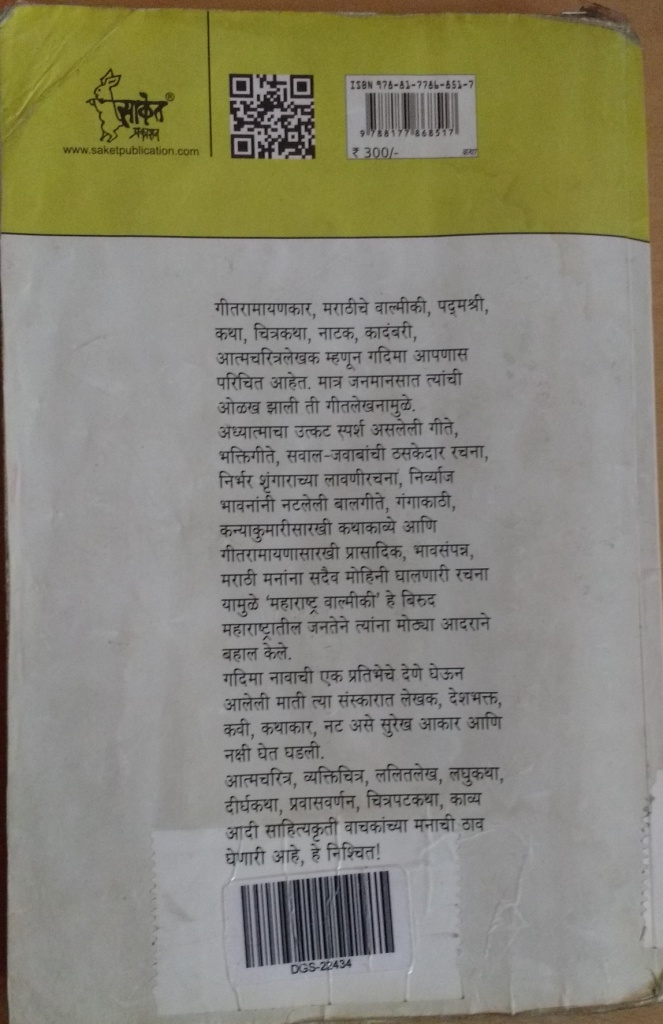 साकेत®
प्रकाशन
www.saketpublication.com
ISBN 978-81-7786-851-7
9 788177 868517
₹ 300/-
गीतरामायणकार, मराठीचे वाल्मीकी, पद्मश्री,
कथा, चित्रकथा, नाटक, कादंबरी,
आत्मचरित्रलेखक म्हणून गदिमा आपणास
परिचित आहेत. मात्र जनमानसात त्यांची
ओळख झाली ती गीतलेखनामुळे.
अध्यात्माचा उत्कट स्पर्श असलेली गीते,
भक्तिगीते, सवाल-जवाबांची ठसकेदार रचना,
निर्भर शृंगाराच्या लावणीरचना, निर्व्याज
भावनांनी नटलेली बालगीते, गंगाकाठी,
कन्याकुमारीसारखी कथाकाव्ये आणि
गीतरामायणासारखी प्रासादिक, भावसंपन्न,
मराठी मनांना सदैव मोहिनी घालणारी रचना
यामुळे 'महाराष्ट्र वाल्मीकी' हे बिरुद
महाराष्ट्रातील जनतेने त्यांना मोठ्या आदराने
बहाल केले.
गदिमा नावाची एक प्रतिभेचे देणे घेऊन
आलेली माती त्या संस्कारात लेखक, देशभक्त,
कवी, कथाकार, नट असे सुरेख आकार आणि
नक्षी घेत घडली.
आत्मचरित्र, व्यक्तिचित्र, ललितलेख, लघुकथा,
दीर्घकथा, प्रवासवर्णन, चित्रपटकथा, काव्य
आदी साहित्यकृती वाचकांच्या मनाची ठाव
घेणारी आहे, हे निश्चित!
DGS-22434